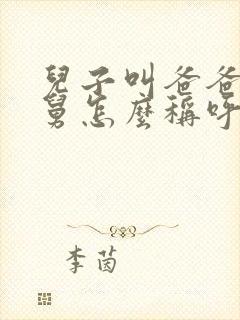 兒子叫爸爸
舅怎麼稱呼
李茵